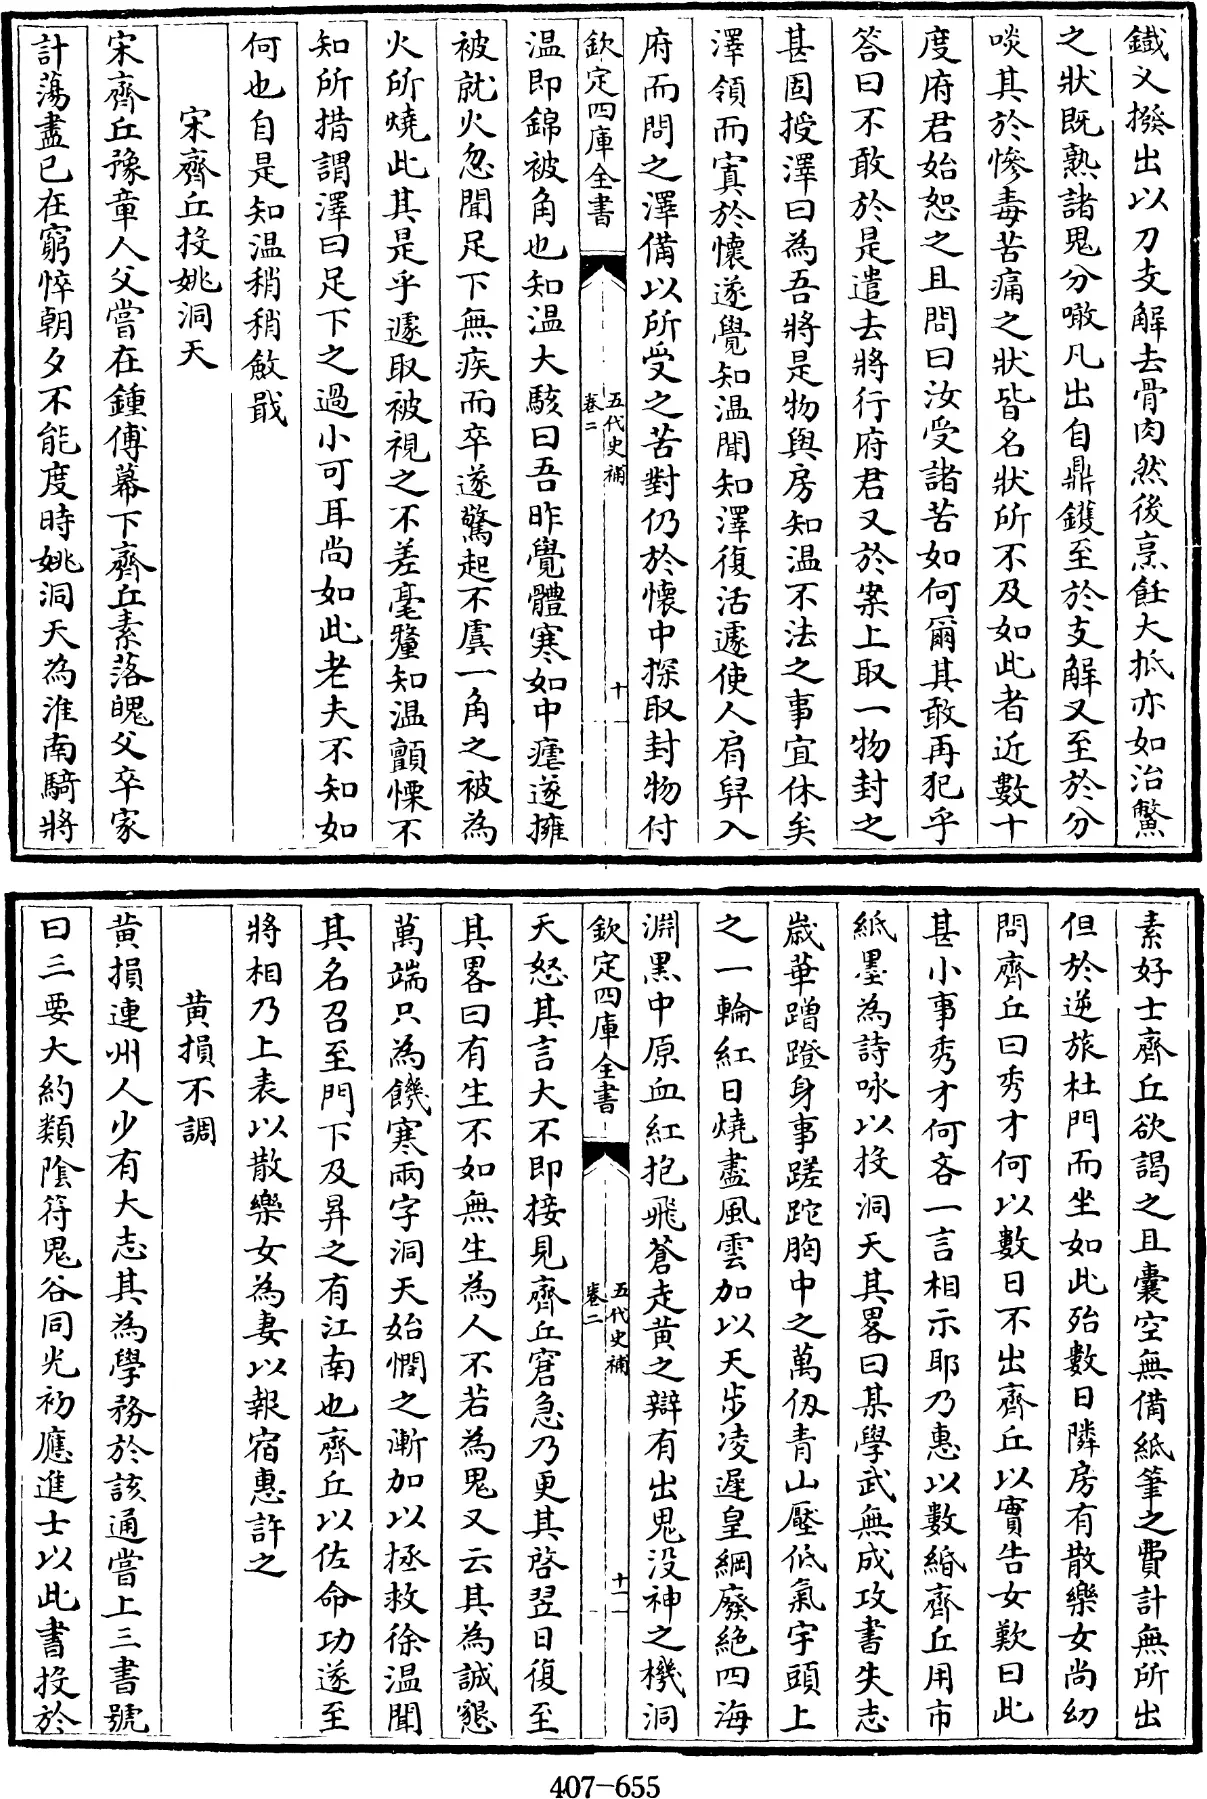 鐵叉撥出以刀支解去骨肉然後烹飪大抵亦如治鱉
之狀既熟諸鬼分噉凡出自鼎鑊至於支解又至於分
啖其於慘毒苦痛之狀皆名狀所不及如此者近數十
度府君始恕之且問曰汝受諸苦如何爾其敢再犯乎
答曰不敢於是遣去將行府君又於案上取一物封之
甚固授澤曰為吾將是物與房知温不法之事宜休矣
澤領而寘於懷遂覺知温聞知澤復活遽使人肩舁入
府而問之澤備以所受之苦對仍於懷中探取封物付
欽定四庫全書
五代史補
卷二
十
温即錦被角也知温大駭曰吾昨覺體寒如中瘧遂擁
被就火忽聞足下無疾而卒遂驚起不虞一角之被為
火所燒此其是乎遽取被視之不差毫釐知温顫慄不
知所措謂澤曰足下之過小可耳尚如此老夫不知如
何也自是知温稍稍斂戢
宋齊丘投姚洞天
宋齊丘豫章人父嘗在鍾傅幕下齊丘素落魄父卒家
計蕩盡已在窮悴朝夕不能度時姚洞天為淮南騎將
素好士齊丘欲謁之且囊空無備紙筆之費計無所出
但於逆旅杜門而坐如此殆數日隣房有散樂女尚幼
問齊丘曰秀才何以數日不出齊丘以實告女歎曰此
甚小事秀才何吝一言相示耶乃惠以數緡齊丘用市
紙墨為詩咏以投洞天其畧曰某學武無成攻書失志
歲華蹭蹬身事蹉跎胸中之萬仭青山壓低氣宇頭上
之一輪紅日燒盡風雲加以天步凌遲皇綱廢絶四海
淵黑中原血紅抱飛蒼走黄之辯有出鬼没神之機洞
欽定四庫全書
五代史補
卷二
十一
天怒其言大不即接見齊丘窘急乃更其啓翌日復至
其畧曰有生不如無生為人不若為鬼又云其為誠懇
萬端只為饑寒兩字洞天始憫之漸加以拯救徐温聞
其名召至門下及昇之有江南也齊丘以佐命功遂至
將相乃上表以散樂女為妻以報宿惠許之
黄損不調
黄損連州人少有大志其為學務於該通嘗上三書號
曰三要大約類陰符鬼谷同光初應進士以此書投於
407-655